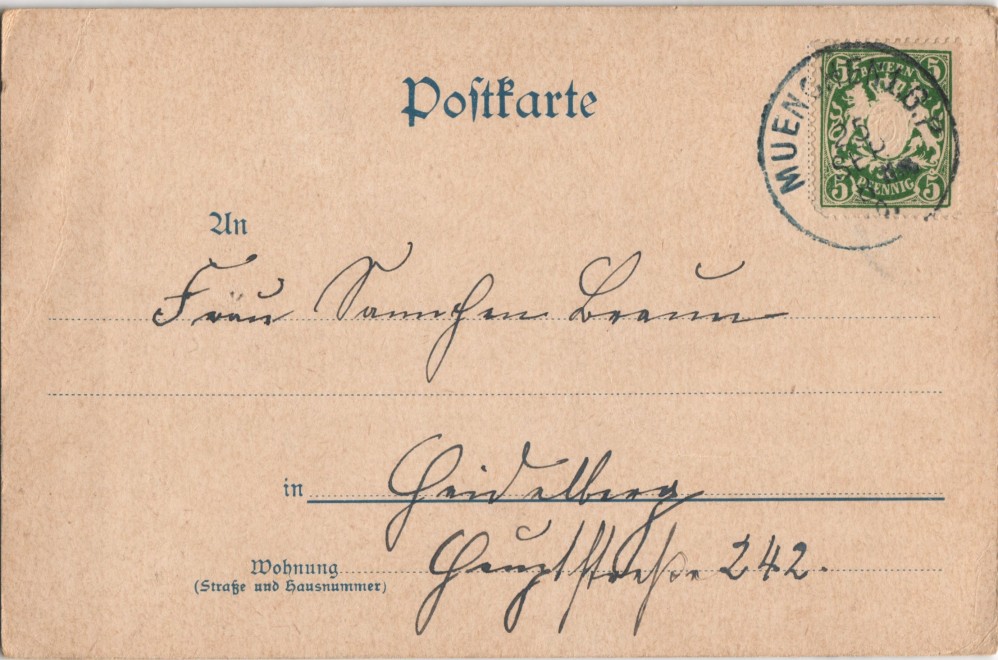 Postkarte
BAYERN
5 5
5 5
PFENNIG
An
Frau Sannchen Braun
in Heidelberg
Wohnung Hauptstraße 242.
(Straße und Hausnummer)